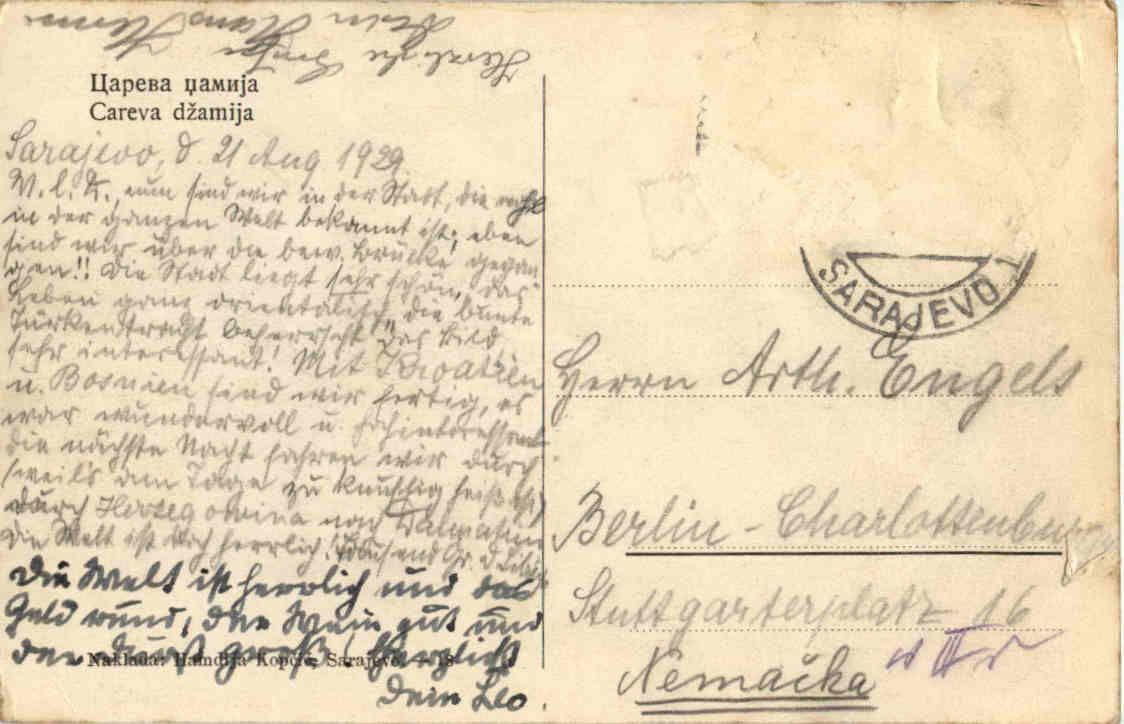 Herzliche Grüße
Dein Hans
Царева џамија
Careva džamija
Sarajevo, d. 21 Aug 1929
M. l. A., nun sind wir in der Stadt, die wohl
in der ganzen Welt bekannt ist; eben
sind wir über die bew. Brücke gegan
gen!! Die Stadt liegt sehr schön, das
Leben ganz orientalisch, die bunte
Türkentracht beherrscht das Bild
sehr interessant! Mit Kroatien
u. Bosnien sind wir fertig, es
war wundervoll u. hochinteressant
die nächste Nacht fahren wir durch
(weil's am Tage zu heiß ist)
durch Herzegowina nach Dalmatien
die Welt ist doch herrlich! Tausend Gr. d.
Die Welt ist herrlich und das
Geld rund, der Wein gut und
der Durst groß! Herzlichst
Dein Leo.
Naklada: Hamdija Kopčić, Sarajevo.
SARAJEVO 1
Herrn Arth. Engels
Berlin - Charlottenburg
Stuttgarterplatz 16
Nemačka